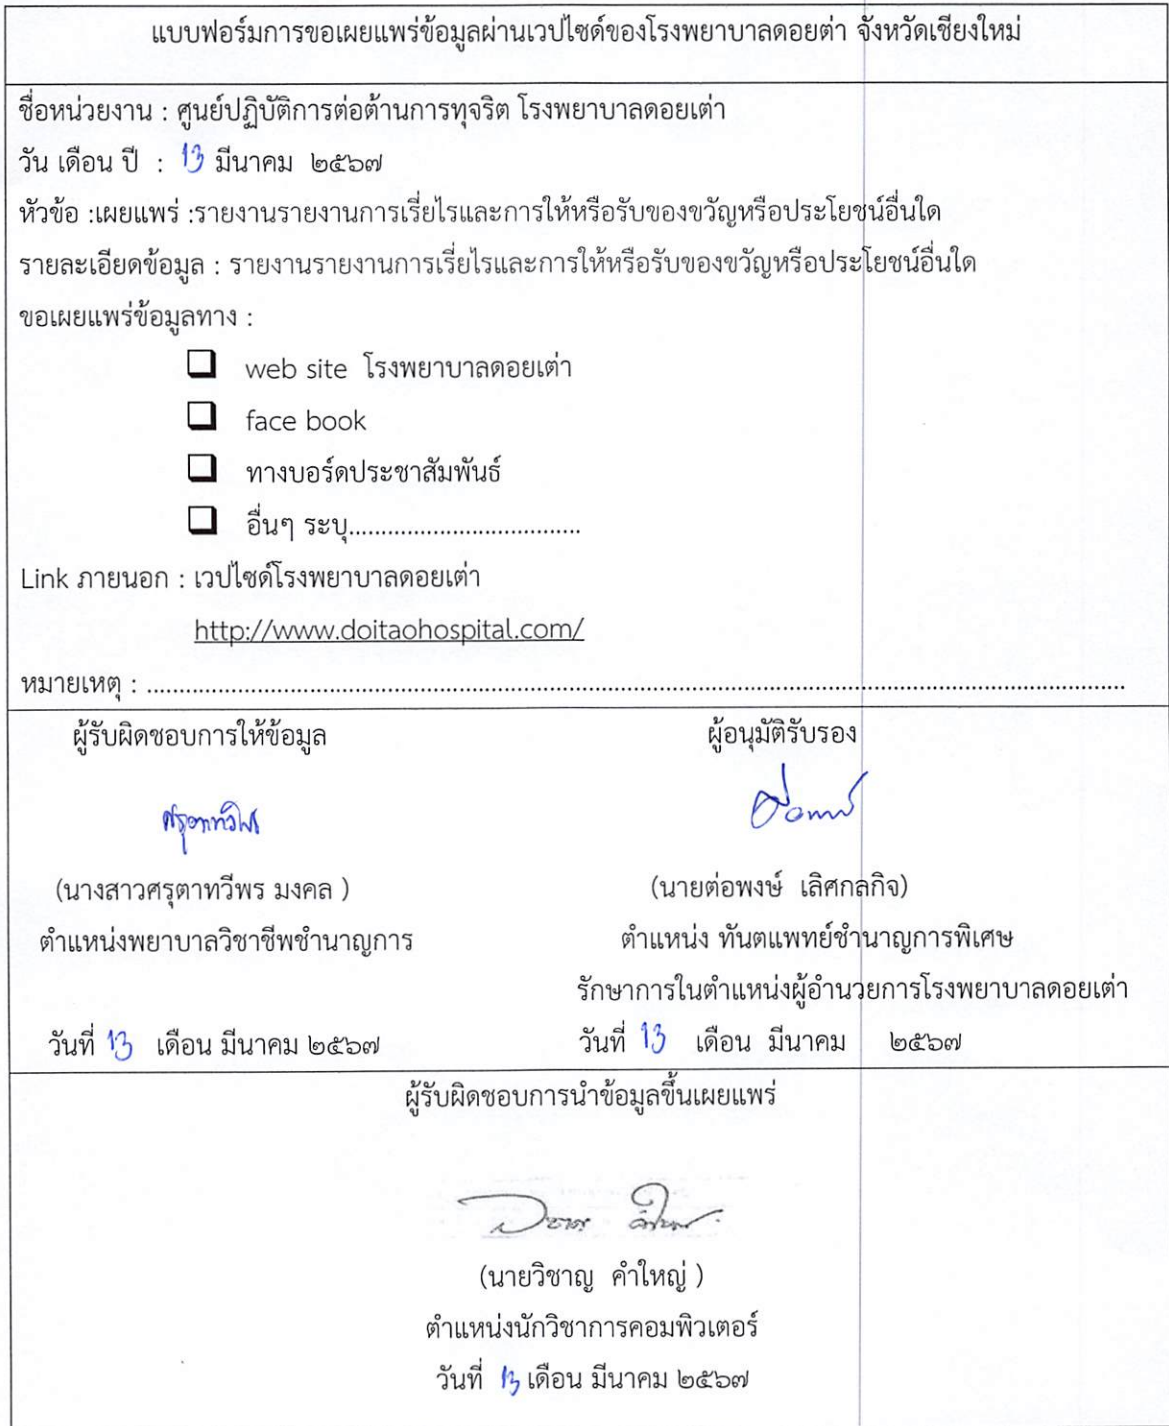 แบบฟอร์มการขอเผยแพร่ข้อมูลผ่านเวปไซด์ของโรงพยาบาลดอยต่า จังหวัดเชียงใหม่
ชื่อหน่วยงาน : ศูนย์ปฏิบัติการต่อต้านการทุจริต โรงพยาบาลดอยเต่า
วัน เดือน ปี : 13 มีนาคม ๒๕๖๗
หัวข้อ :เผยแพร่ :รายงานรายงานการเรี่ยไรและการให้หรือรับของขวัญหรือประโยชน์อื่นใด
รายละเอียดข้อมูล : รายงานรายงานการเรี่ยไรและการให้หรือรับของขวัญหรือประโยชน์อื่นใด
ขอเผยแพร่ข้อมูลทาง :
web site โรงพยาบาลดอยเต่า
face book
ทางบอร์ดประชาสัมพันธ์
อื่นๆ ระบุ....................................
Link ภายนอก : เวปไซด์โรงพยาบาลดอยเต่า
http://www.doitaohospital.com/
หมายเหตุ : ........................................................................................................................................................
ผู้รับผิดชอบการให้ข้อมูล
ศรุตาทวีพร
(นางสาวศรุตาทวีพร มงคล )
ตำแหน่งพยาบาลวิชาชีพชำนาญการ
วันที่ 13 เดือน มีนาคม ๒๕๖๗
ผู้อนุมัติรับรอง
(นายต่อพงษ์ เลิศกลกิจ)
ตำแหน่ง ทันตแพทย์ชำนาญการพิเศษ
รักษาการในตำแหน่งผู้อำนวยการโรงพยาบาลดอยเต่า
วันที่ 13 เดือน มีนาคม ๒๕๖๗
ผู้รับผิดชอบการนำข้อมูลขึ้นเผยแพร่
(นายวิชาญ คำใหญ่ )
ตำแหน่งนักวิชาการคอมพิวเตอร์
วันที่ 13 เดือน มีนาคม ๒๕๖๗